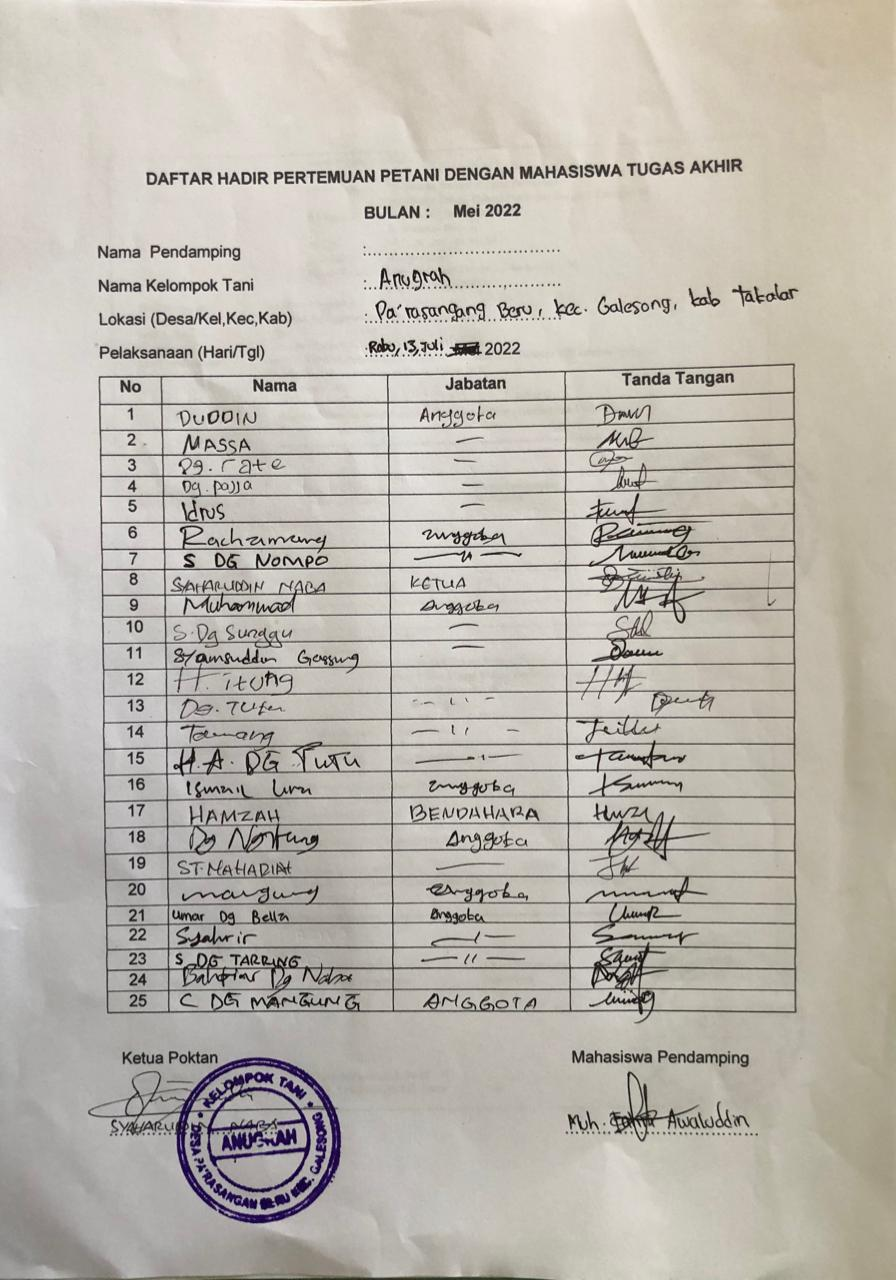 DAFTAR HADIR PERTEMUAN PETANI DENGAN MAHASISWA TUGAS AKHIR
BULAN : Mei 2022
Nama Pendamping :....................................
Nama Kelompok Tani : Anugrah
Lokasi (Desa/Kel,Kec,Kab) : Pa'rasangang Beru, Kec. Galesong, kab Takalar
Pelaksanaan (Hari/Tgl) : Rabu, 13, Juli 2022
No Nama Jabatan Tanda Tangan
1 DUDDIN Anggota
2 MASSA —
3 Dg. rate —
4 Dg. pajja —
5 Idrus —
6 Rachamang anggota
7 S DG NOMPO — " —
8 SAHARUDDIN NABA KETUA
9 Muhammad Anggota
10 S. Dg Sunggu —
11 Syamsuddin Gassing —
12 H. itung
13 Dg. — " —
14 — " —
15 H. A. DG TUTU — " —
16 Ismail anggota
17 HAMZAH BENDAHARA
18 Dg Anggota
19 ST. MAHADIAH —
20 anggota
21 Umar Dg Bella anggota
22 Syahrir — " —
23 S DG TARRING — " —
24 Bahtiar Dg
25 C DG MANGUNG ANGGOTA
Ketua Poktan Mahasiswa Pendamping
SYAHARUDDIN NABA Muh. Awaluddin
KELOMPOK TANI
ANUGRAH
DESA PA'RASANGAN BERU KEC. GALESONG